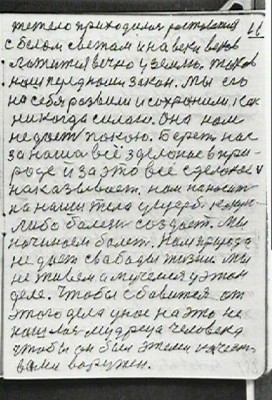 тяжело приходился расставаться
с белом светам и на веки веков
ложится вечно у землю. таков
наш природный закон. Мы его
на себя развели и сохраним, как
никогда силою. Она нам
не дает покою. Берет нас
за наша всё зделоное в при-
роде и за это всё сделоное
наказывает, нам наносит
на наши тела ущерб. какую
либо болезн создает. Мы
начинаем болет. Нам природа
не дает свабоды жизни. Мы
не живем а мучемся у этом
деле. Чтобы избавится от
этого дела у нас на это не
нашлося мудреца человека
чтобы он был этими качест-
вами воружен.